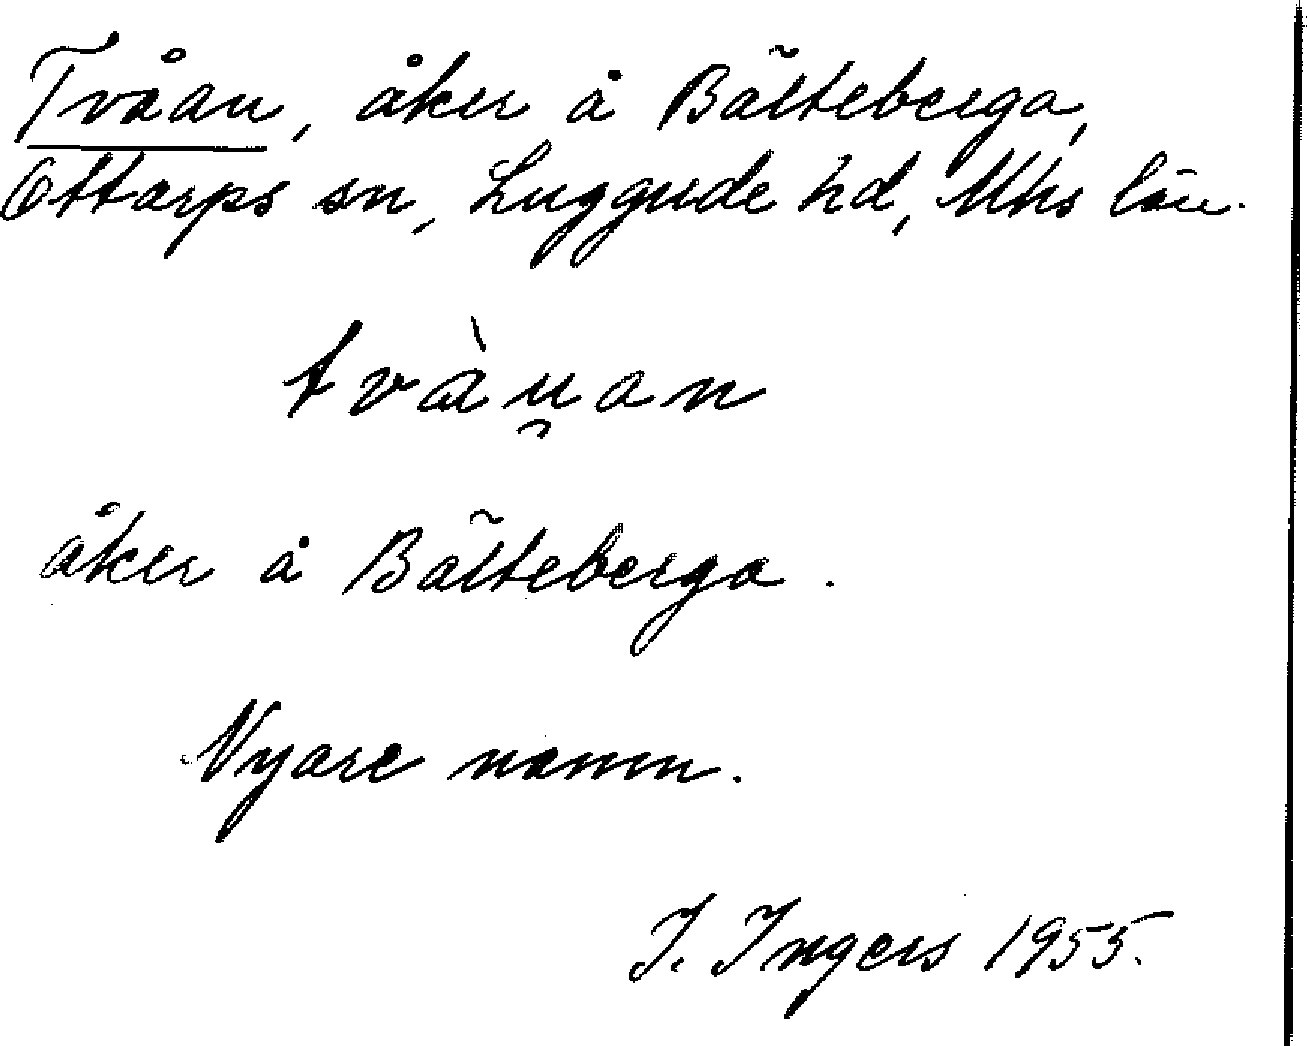 Tvåan, åker å Bälteberga,
Ottarps sn, Luggude hd, Mhs län.
tvàu̯an
åker å Bälteberga.
Nyare namn.
I. Ingers 1955.